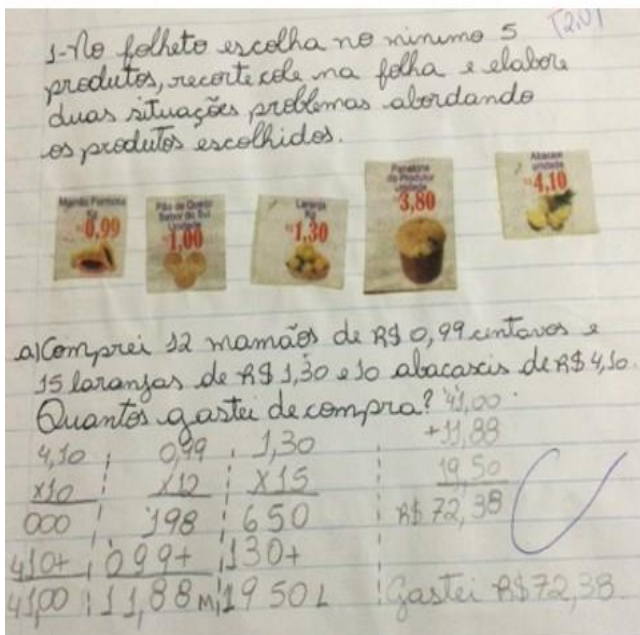 [2,0]
1-No folheto escolha no minimo 5
produtos, recorte e cole na folha e elabore
duas situações problemas abordando
os produtos escolhidos.
Mamão Formosa
Kg
R$ 0,99
Pão de Queijo
Sabor do Sul
Unidade
R$ 1,00
Laranja
Kg
R$ 1,30
Panetone
do Produtor
unidade
R$ 3,80
Abacaxi
unidade
R$ 4,10
a) Comprei 12 mamãos de R$ 0,99 centavos e
15 laranjas de R$ 1,30 e 10 abacaxis de R$ 4,10.
Quantos gastei de compra?
4,10
x10
000
410+
41,00
0,99
x12
198
099+
11,88 M
1,30
x15
650
130+
1950 L
41,00
+11,88
19,50
R$ 72,38
Gastei R$ 72,38